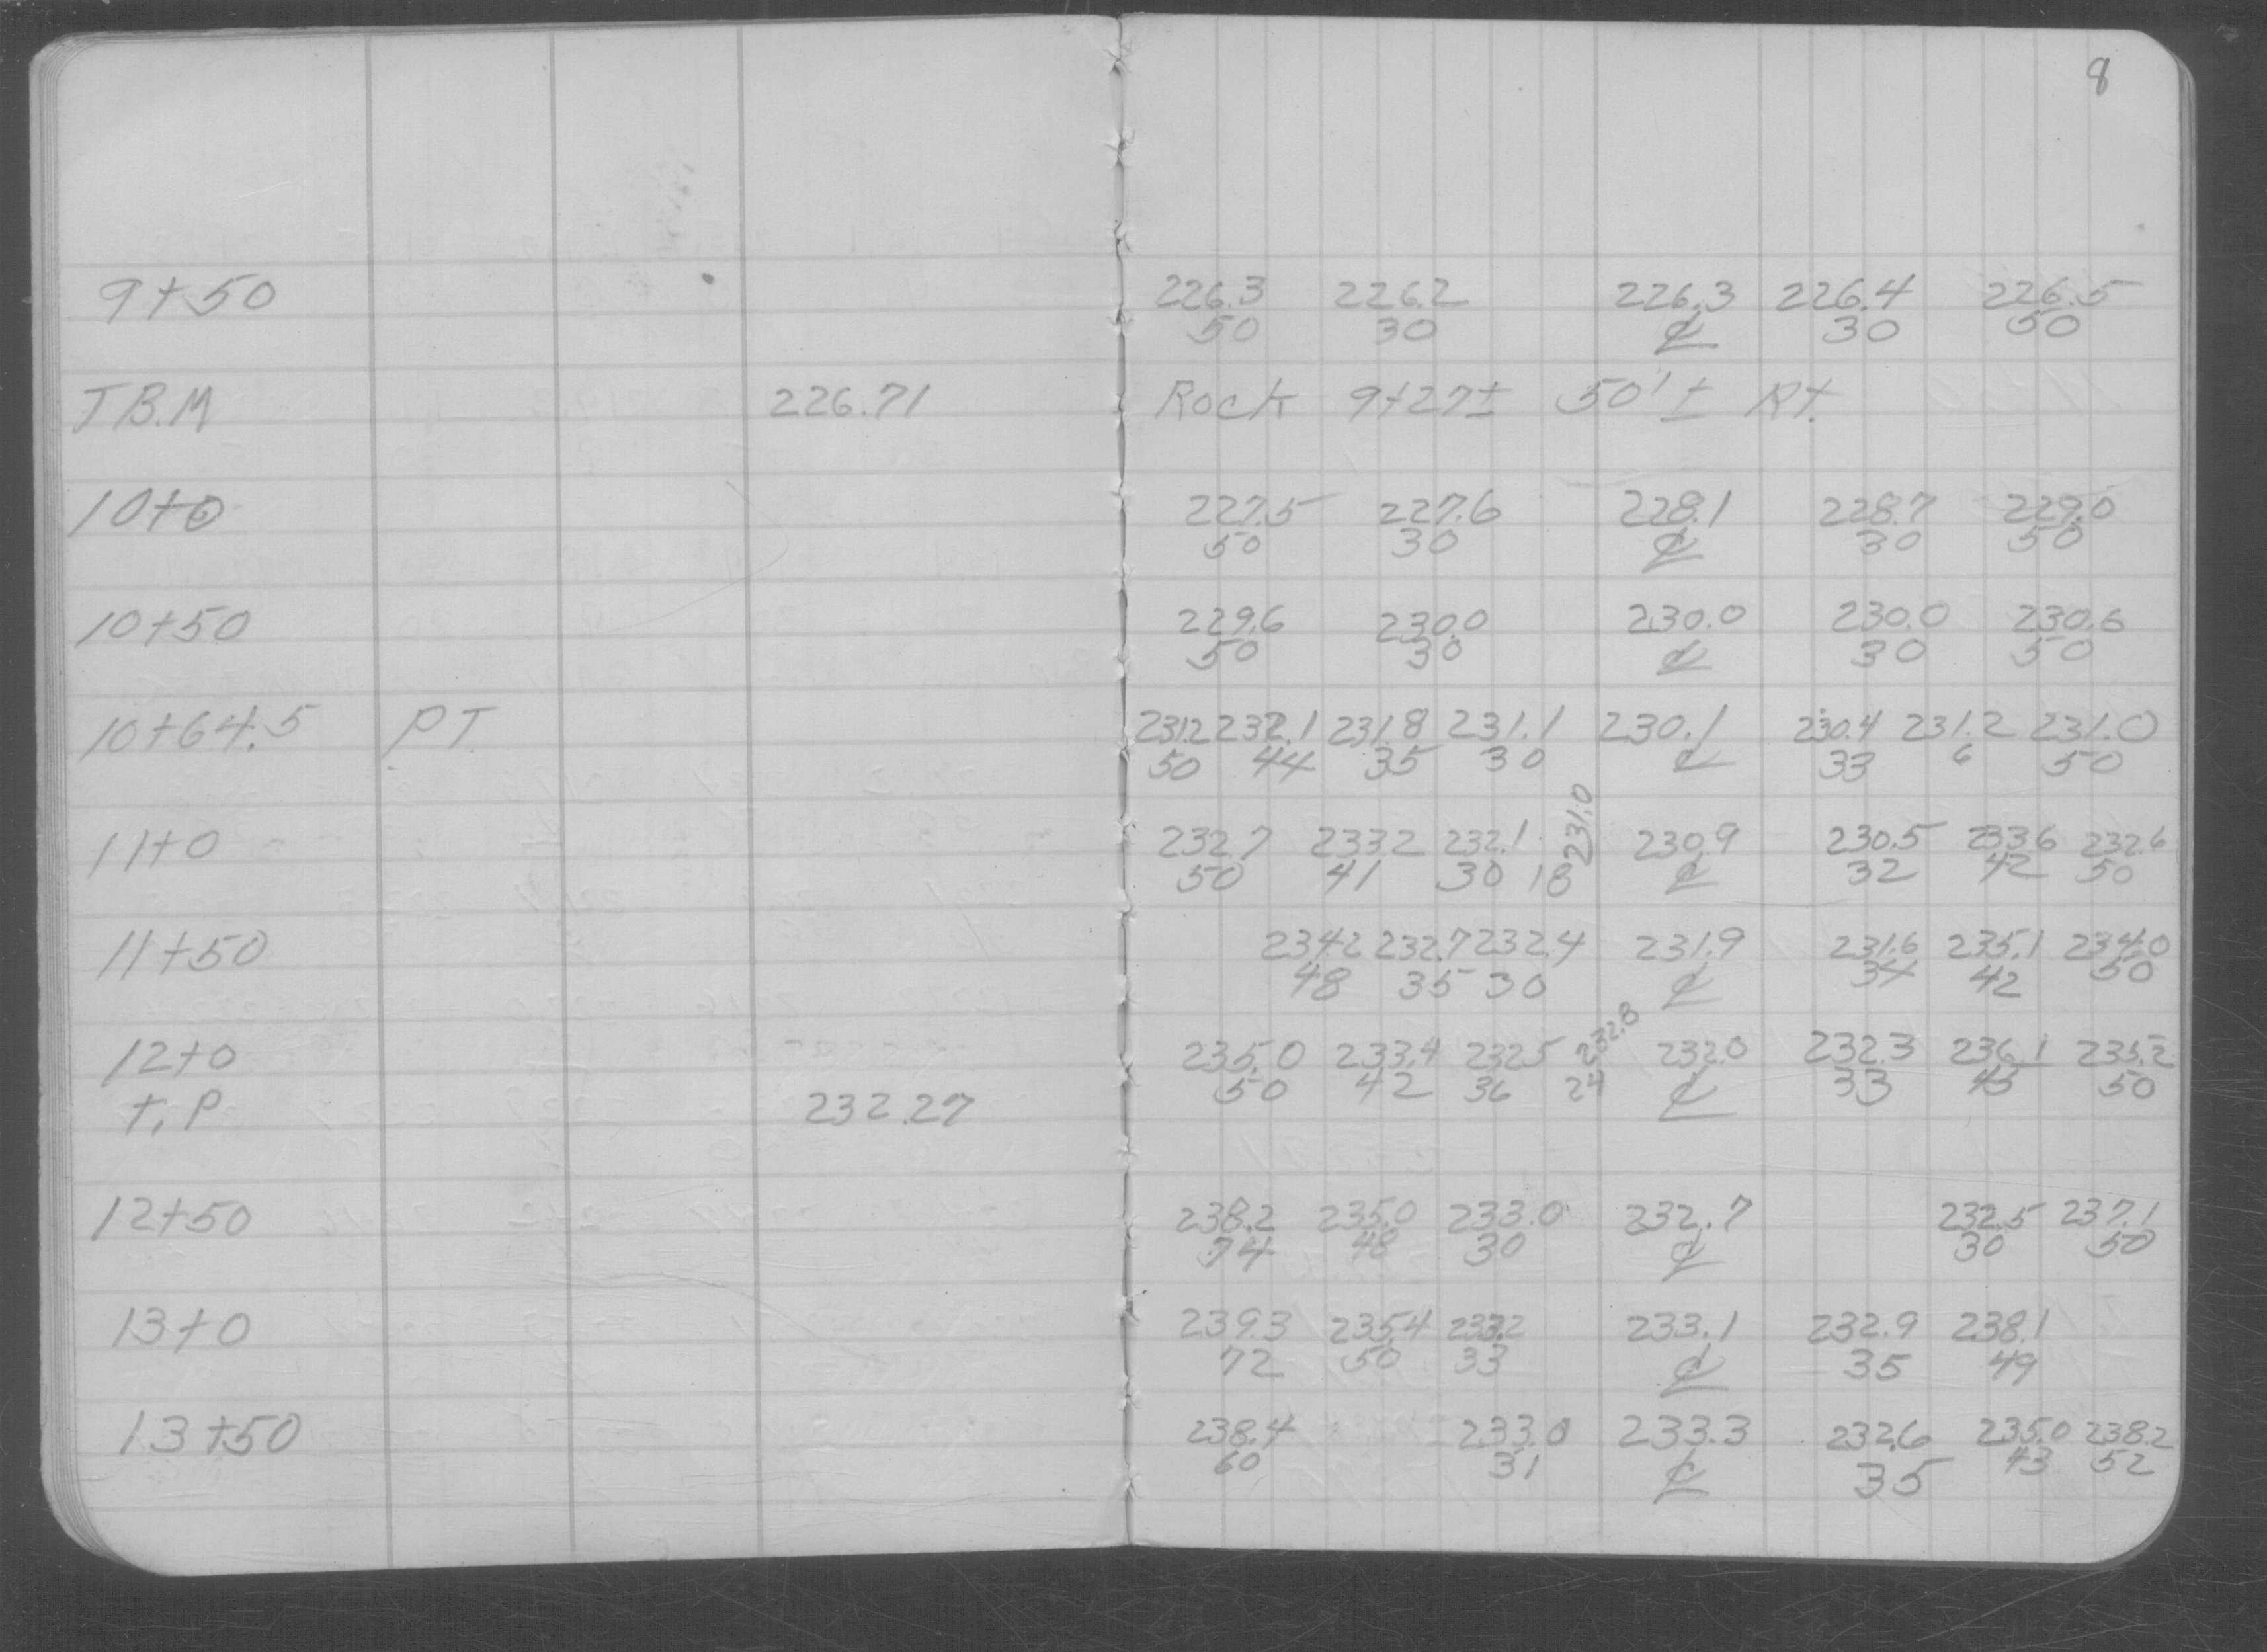 8
9+50 226.3 226.2 226.3 226.4 226.5
50 30 ℄ 30 50
T.B.M 226.71 Rock 9+27± 50'± Rt.
10+0 227.5 227.6 228.1 228.7 229.0
50 30 ℄ 30 50
10+50 229.6 230.0 230.0 230.0 230.6
50 30 ℄ 30 50
10+64.5 PT 231.2 232.1 231.8 231.1 230.1 230.4 231.2 231.0
50 44 35 30 ℄ 33 6 50
11+0 232.7 233.2 232.1 231.0 230.9 230.5 233.6 232.6
50 41 30 18 ℄ 32 42 50
11+50 234.2 232.7 232.4 231.9 231.6 235.1 234.0
48 35 30 ℄ 34 42 50
12+0 235.0 233.4 232.5 232.8 232.0 232.3 236.1 235.2
50 42 36 24 ℄ 33 45 50
T.P 232.27
12+50 238.2 235.0 233.0 232.7 232.5 237.1
74 48 30 ℄ 30 50
13+0 239.3 235.4 233.2 233.1 232.9 238.1
72 50 33 ℄ 35 49
13+50 238.4 233.0 233.3 232.6 235.0 238.2
60 31 ℄ 35 43 52